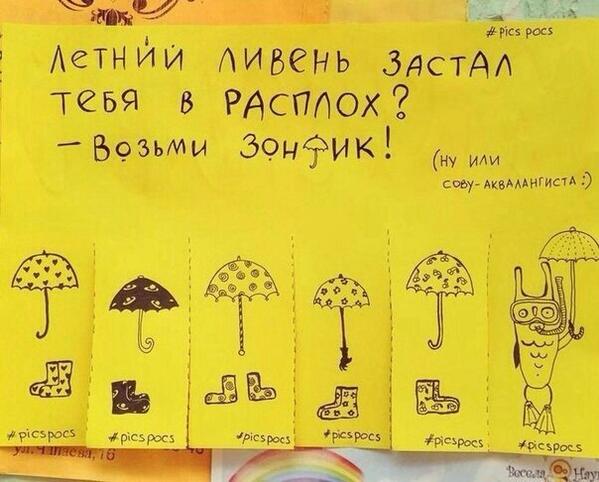 # pics pocs
Летний ливень застал
тебя в расплох?
– Возьми зонтик!
(ну или
сову-аквалангиста :)
#picspocs #picspocs #picspocs #picspocs #picspocs #picspocs
ул. Чапаева, 16
Весела Нау